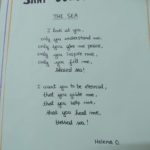 THE SEA
I look at you,
only you understand me,
only you give me peace,
only you inspire me,
only you fill me,
blessed sea!
I want you to be eternal,
that you guide me,
that you help me,
that you heal me,
blessed sea!
Helena O.